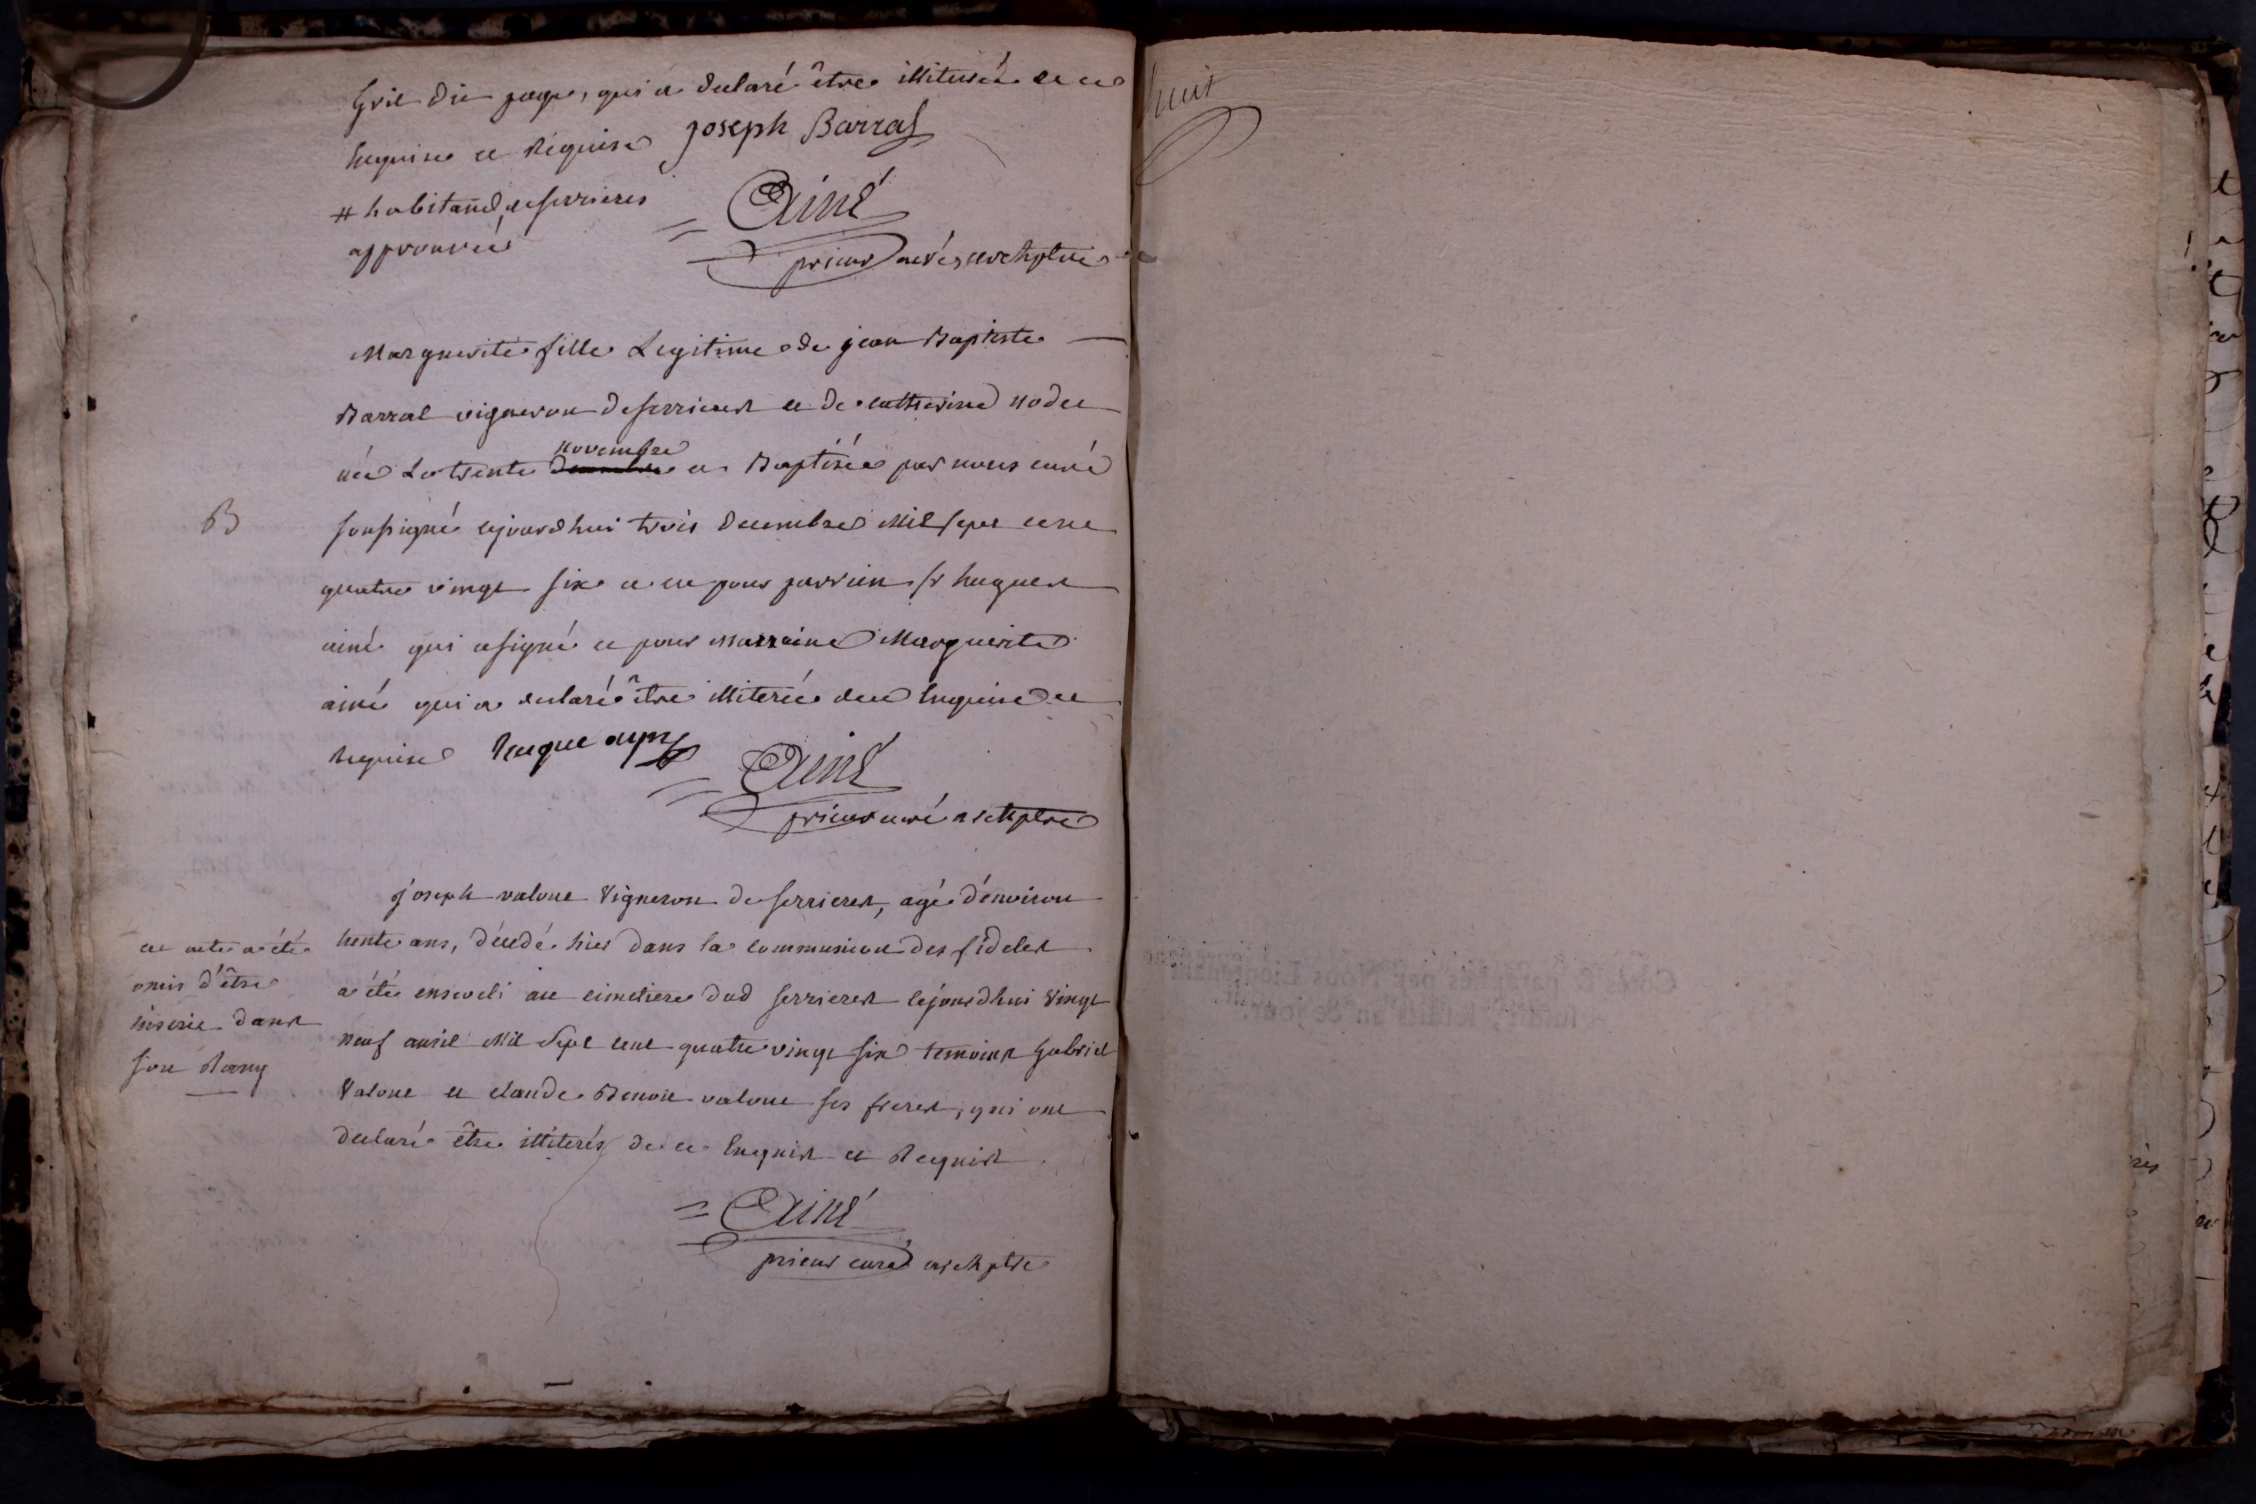 qui a declaré être illiterée de ce
enquise et Requise Joseph Barral
# habitand de serrieres
approuvée
Ainé
prieur curé archiptre
Marguerite fille Legitime de jean Baptiste
Barral vigneron de serrieres et de catherine nodet
née Le trente novembre et Baptisée par nous curé
B
soussigné cejourdhui trois decembre Mil sept cent
quatre vingt six a eu pour parrien sr hugues
ainé qui a signé et pour Marraine Marguerite
ainé qui a declaré être illiterée de ce enquise et
Requise
Ainé
prieur curé archiptre
joseph valone Vigneron de serrieres, agé d'environ
trente ans, décedé hier dans la communion des fideles
a été enseveli au cimetiere dud serrieres cejourdhui Vingt
neuf avril Mil Sept cent quatre vingt six temoins gabriel
Valone et claude Benoit valone ses freres, qui ont
declaré être illiterés de ce Enquis et Requis
cet acte a été
omis d'être
inserie dans
son Rang
Ainé
prieur curé archiptre
huit
Cotés & paraphés par Nous Lieutenant